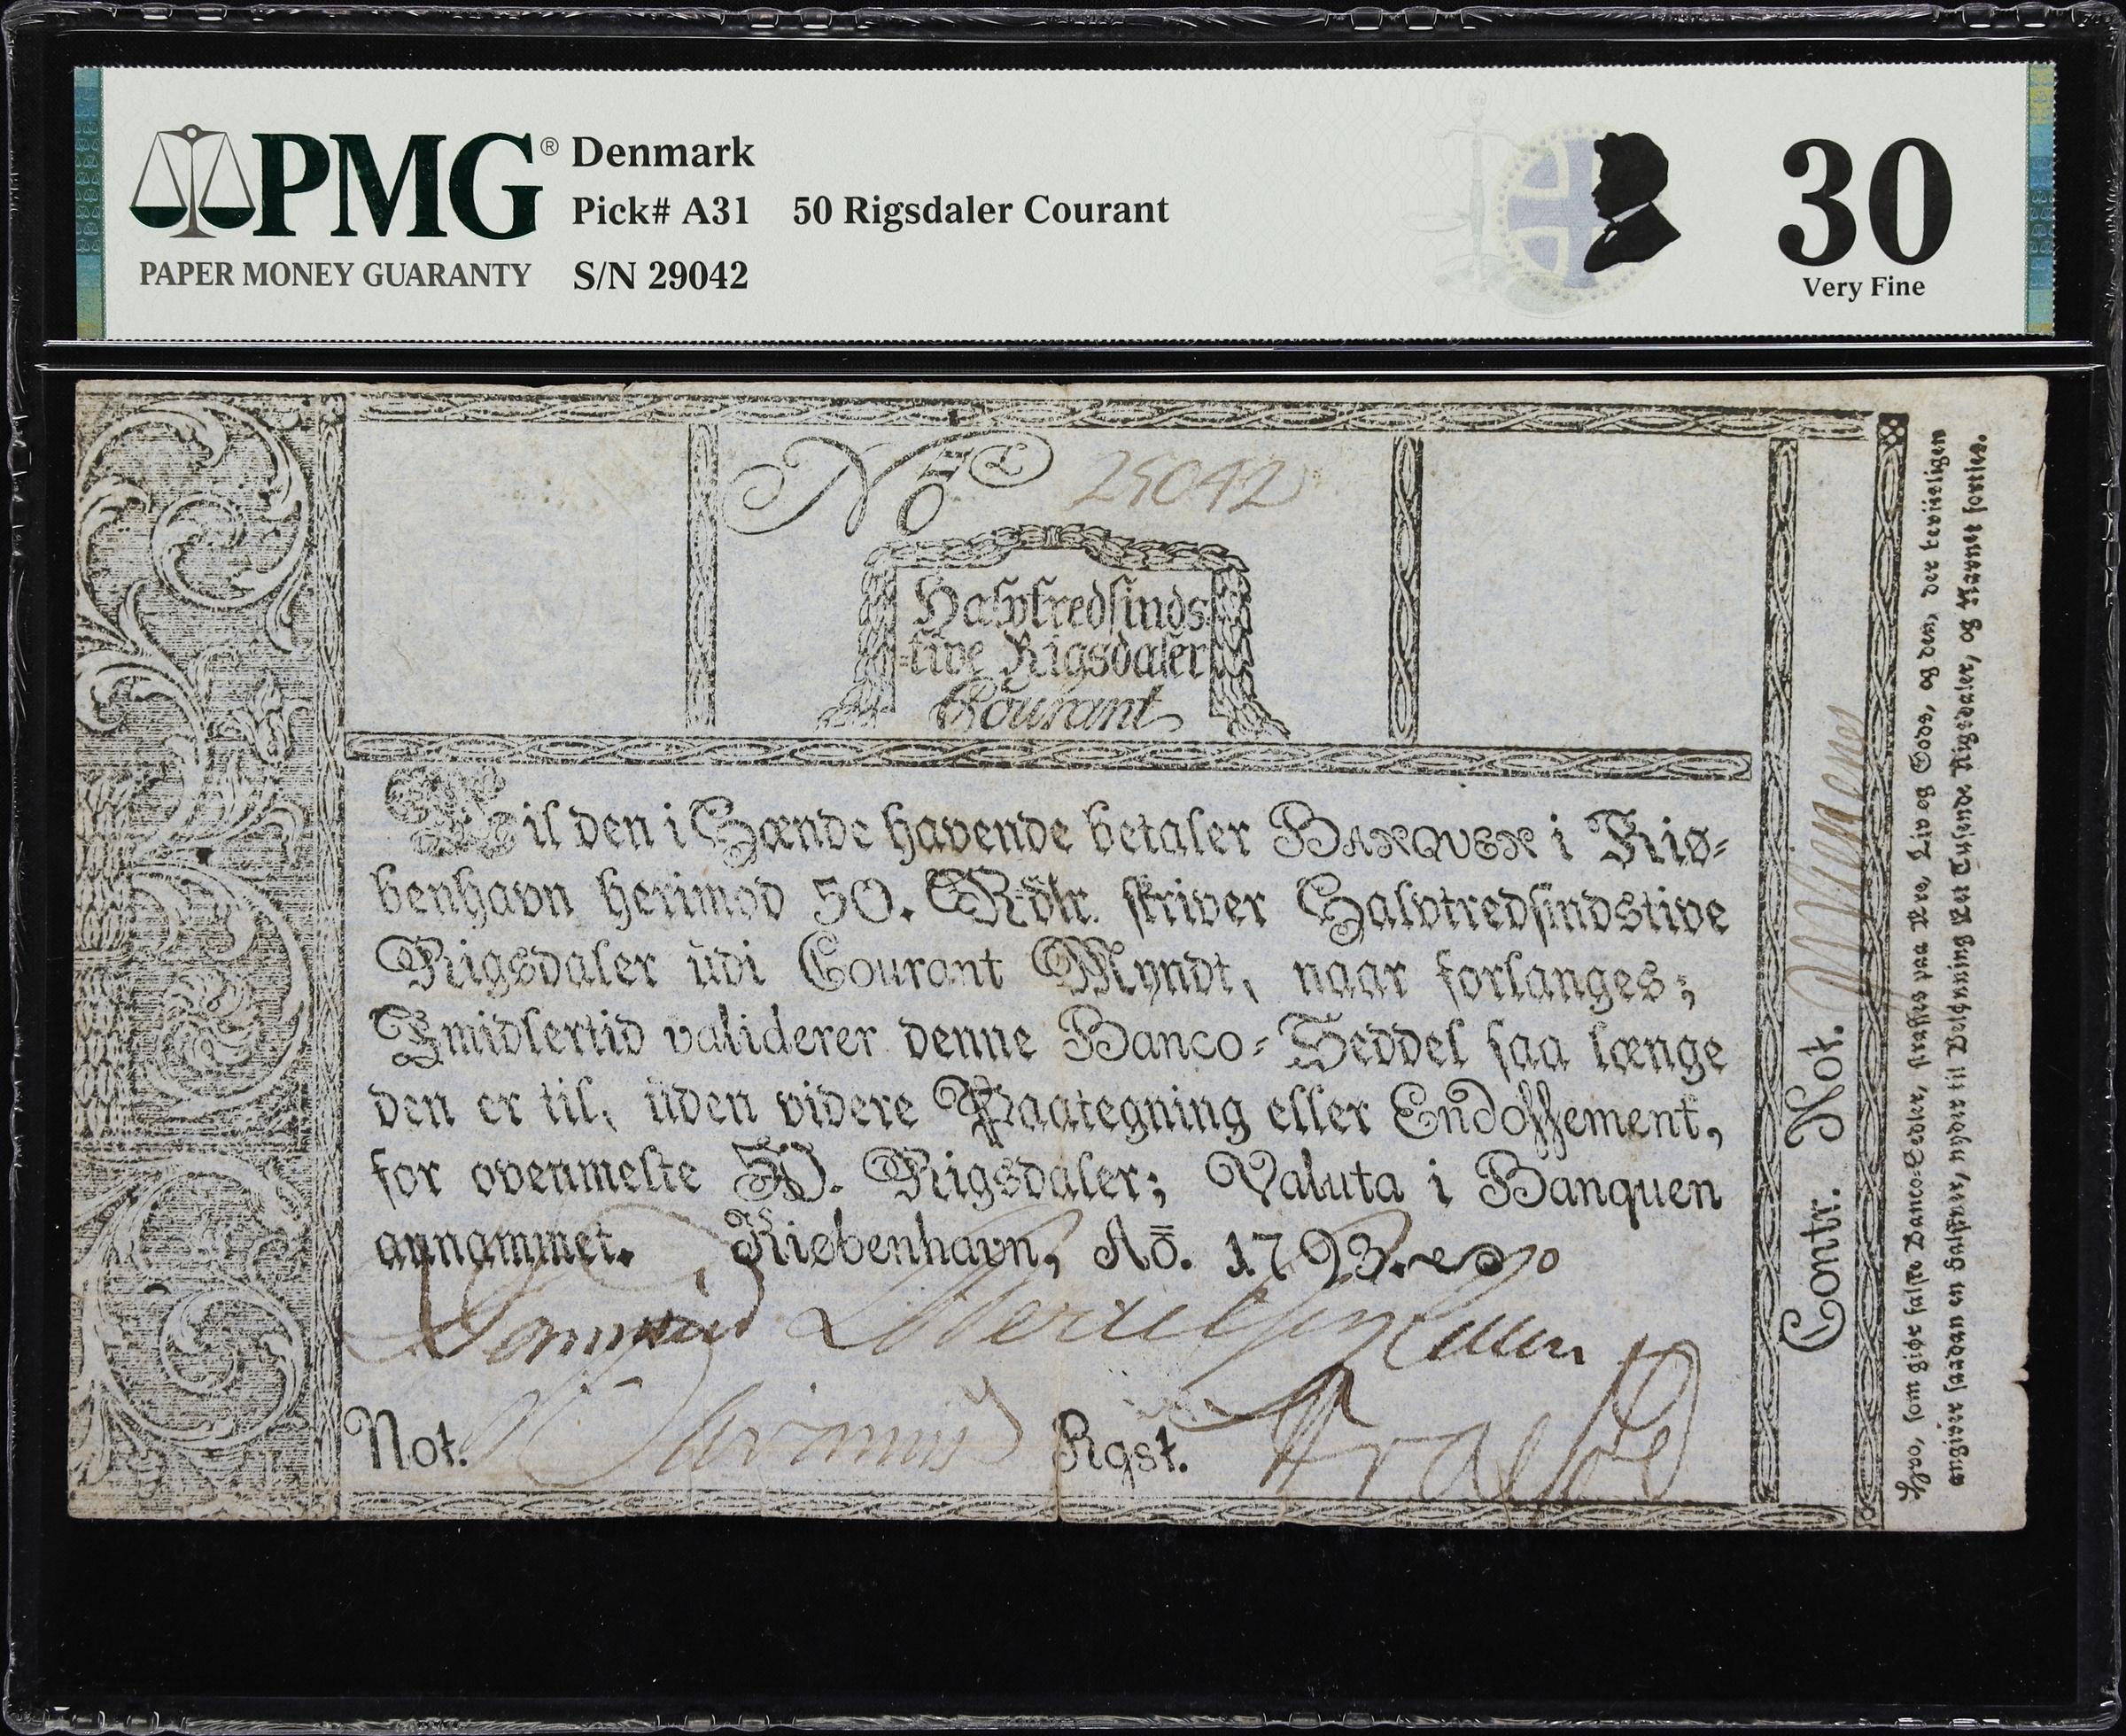 PMG® Denmark
Pick# A31 50 Rigsdaler Courant
PAPER MONEY GUARANTY S/N 29042
30
Very Fine
No 29042
Halvtredsinds
=tive Rigsdaler
Courant
Til den i Hænde havende betaler BANQUEN i Kiø=
benhavn herimod 50. Rdlr. skriver Halvtredsindstive
Rigsdaler udi Courant Myndt, naar forlanges;
Imidlertid validerer denne Banco=Seddel saa længe
den er til, uden videre Paategning eller Endossement,
for ovenmelte 50. Rigsdaler; Valuta i Banquen
annammet. Kiøbenhavn, Aō. 1793.
Not. Rgst.
Contr. Not.
som giør falske Banco=Sedler, straffes paa Ære, Liv og Gods, og den, der beviseligen
angiver saadan en Forfalsker, nyder til Belønning Eet Tusinde Rigsdaler, og Navnet forties.